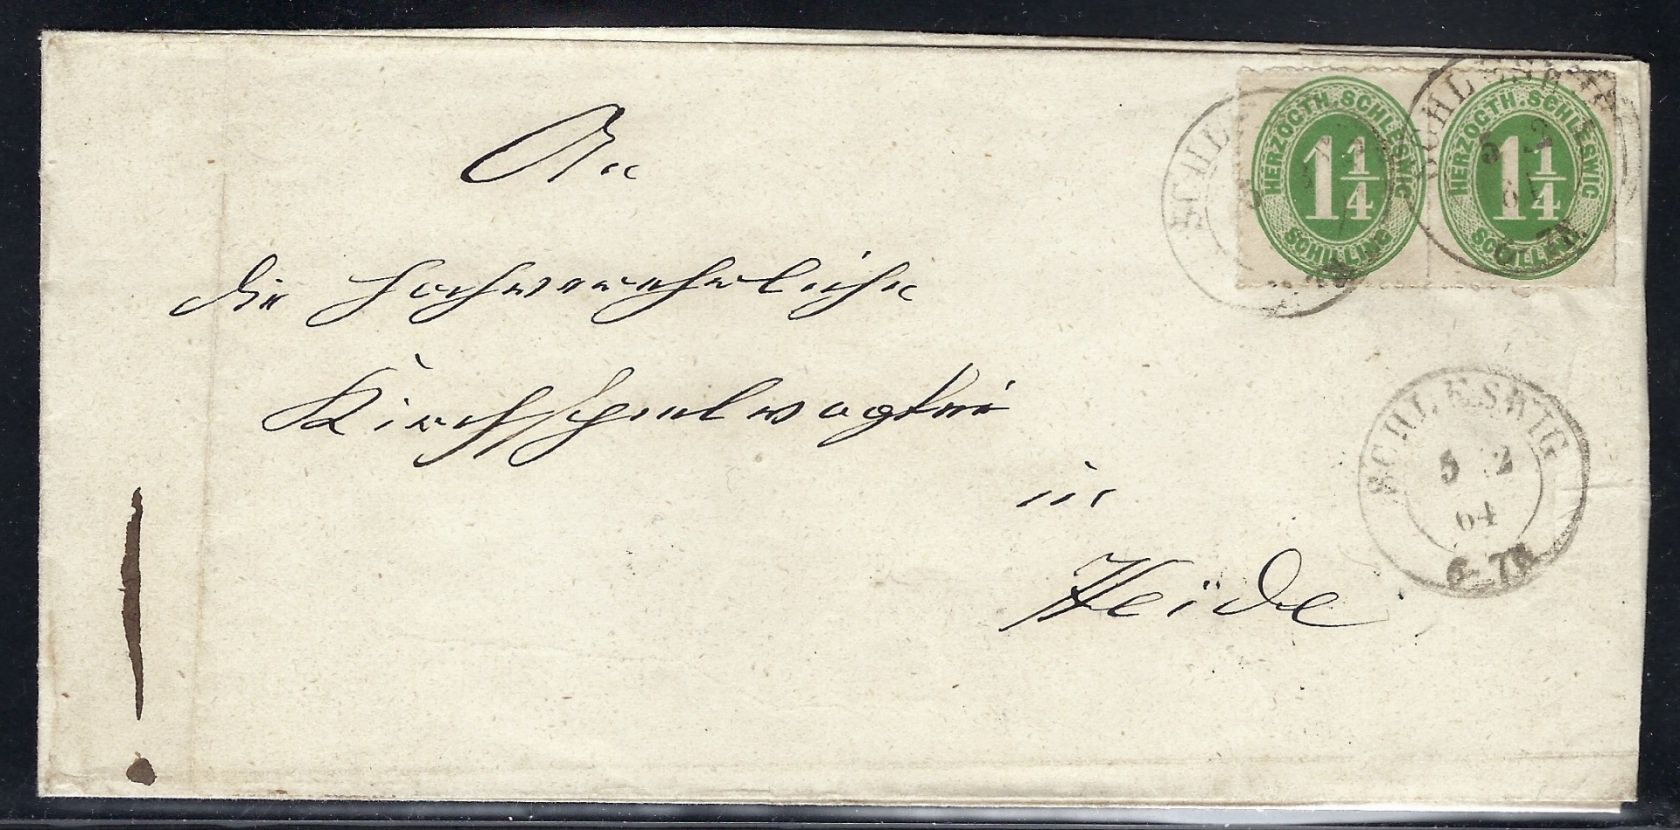 An
die Hochwerehrliche
Kirchspielvogtei
in
Heide
HERZOGTH. SCHLESWIG
1 1/4
SCHILLING
HERZOGTH. SCHLESWIG
1 1/4
SCHILLING
SCHLESWIG
5 2
64
SCHLESWIG
5 12
64
6-7N